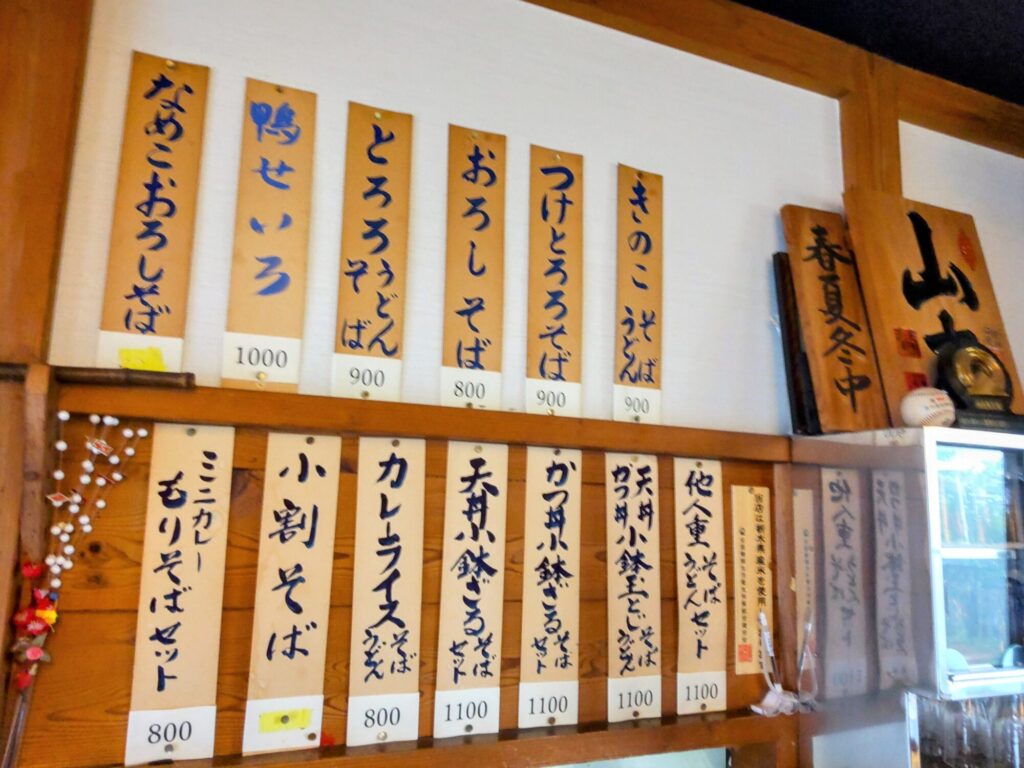 なめこおろしそば
鴨せいろ
1000
とろろうどん
そば
900
おろしそば
800
つけとろろそば
900
きのこ そば
うどん
900
春夏冬中
山
ミニカレー
もりそばセット
800
小割そば
カレーライス そば
うどん
800
天丼小鉢ざる そば
セット
1100
かつ丼小鉢ざる そば
セット
1100
天丼
かつ丼 小鉢玉とじ そば
うどん
1100
他人重 そば
うどん セット
1100
当店は栃木県産米を使用